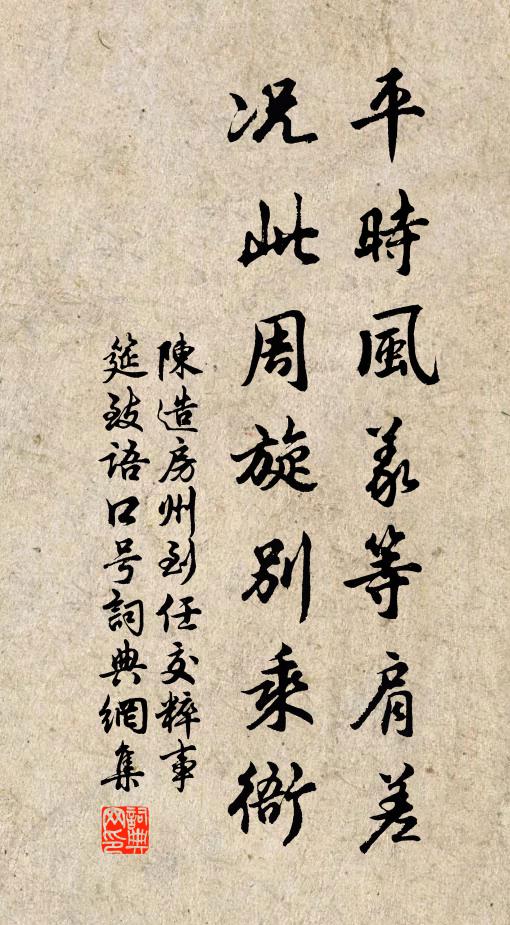 平時風義等肩差
况此周旋別乘衙
陳造房州到任交粹事
筵致語口号詞典網集
詞典网印